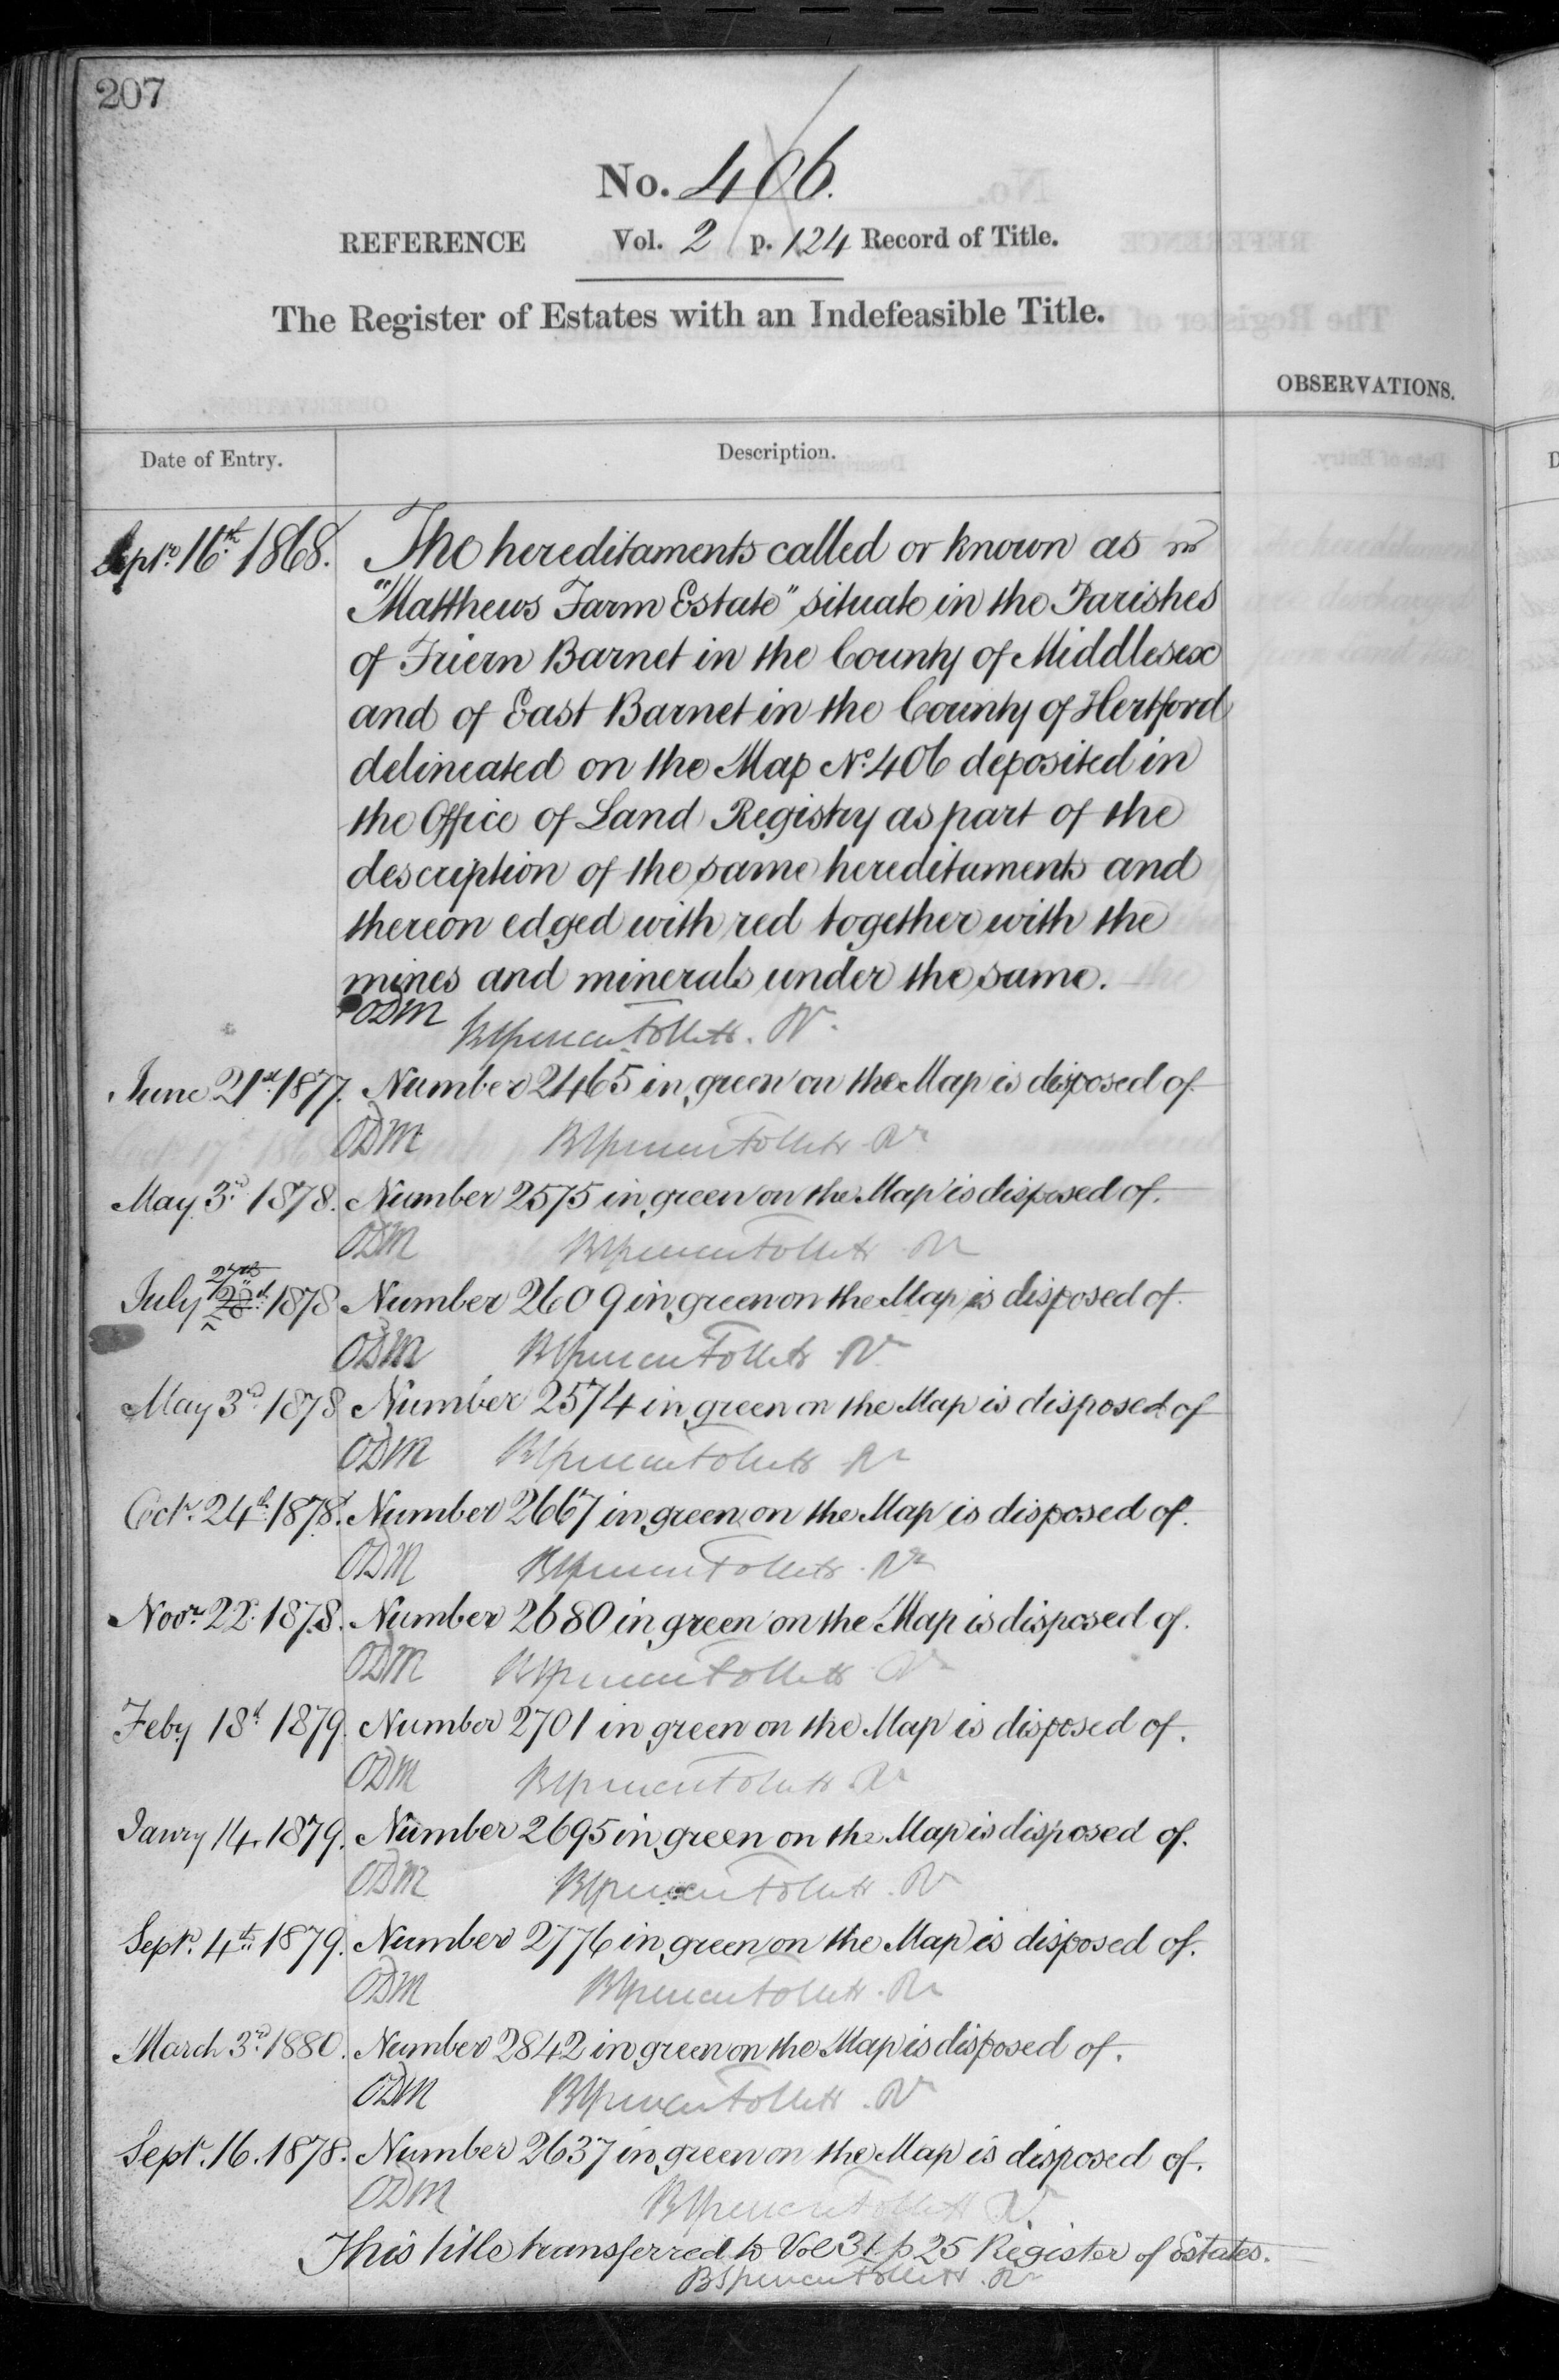 207
No. 406.
REFERENCE Vol. 2 p. 124 Record of Title.
The Register of Estates with an Indefeasible Title.
OBSERVATIONS.
Date of Entry. Description.
Septr. 16th 1868. The hereditaments called or known as
"Matthews Farm Estate" situate in the Parishes
of Friern Barnet in the County of Middlesex
and of East Barnet in the County of Hertford
delineated on the Map No. 406 deposited in
the Office of Land Registry as part of the
description of the same hereditaments and
thereon edged with red together with the
mines and minerals under the same.
ODM BSpencer Follett. Rr.
June 21st 1877. Number 2465 in green on the Map is disposed of
ODM BSpencer Follett Rr
May 3rd 1878. Number 2575 in green on the Map is disposed of.
ODM BSpencer Follett Rr
27th
July 1878 Number 2609 in green on the Map is disposed of.
ODM BSpencer Follett Rr
May 3rd 1878 Number 2574 in green on the Map is disposed of
ODM BSpencer Follett Rr
Octr. 24th 1878. Number 2667 in green on the Map is disposed of.
ODM BSpencer Follett. Rr
Novr. 22. 1878. Number 2680 in green on the Map is disposed of.
ODM BSpencer Follett Rr
Feby 18th 1879. Number 2701 in green on the Map is disposed of.
ODM BSpencer Follett. Rr
Janry 14. 1879. Number 2695 in green on the Map is disposed of.
ODM BSpencer Follett. Rr
Septr. 4th 1879. Number 2776 in green on the Map is disposed of.
ODM BSpencer Follett. Rr
March 3rd 1880. Number 2842 in green on the Map is disposed of.
ODM BSpencer Follett. Rr
Septr. 16. 1878. Number 2637 in green on the Map is disposed of.
ODM BSpencer Follett Rr.
This title transferred to Vol 31 p 25 Register of Estates.
BSpencer Follett. Rr